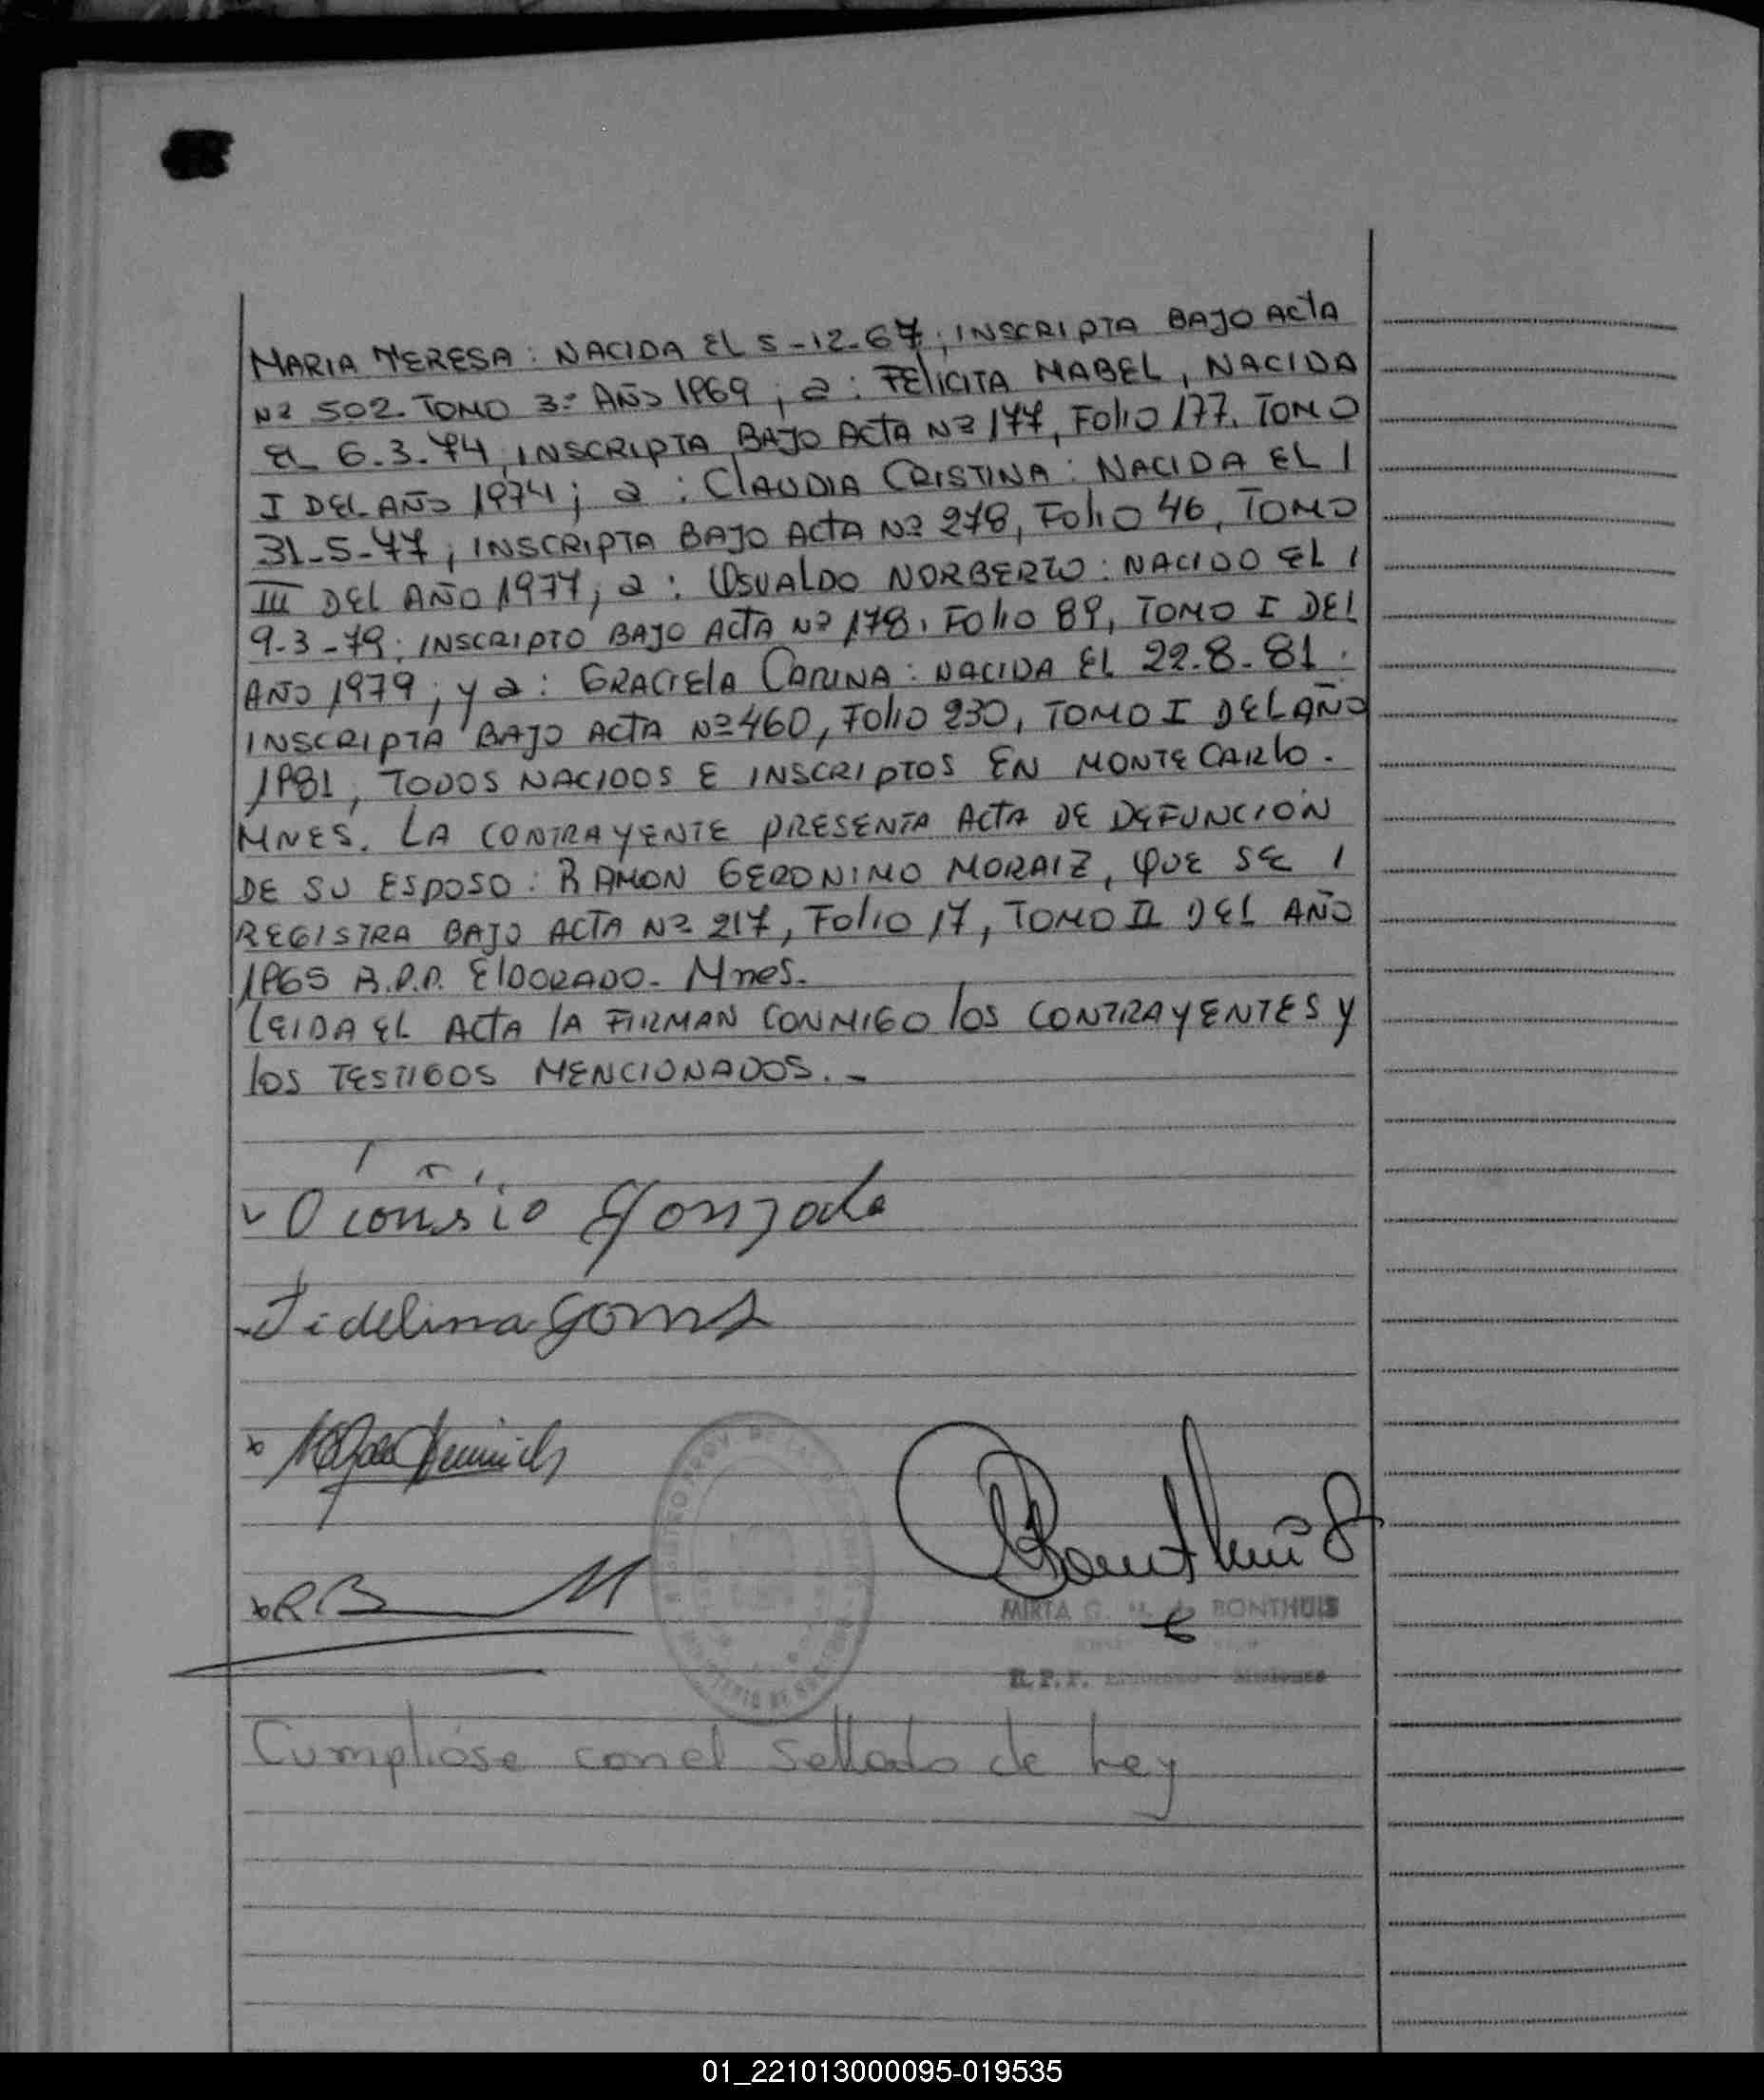 MARIA TERESA: NACIDA EL 5-12-67; INSCRIPTA BAJO ACTA
Nº 502. TOMO 3º AÑO 1969; a: FELICITA MABEL, NACIDA
EL 6.3.74, INSCRIPTA BAJO ACTA Nº 177, Folio 177. TOMO
I DEL AÑO 1974; a: CLAUDIA CRISTINA: NACIDA EL /
31-5-77; INSCRIPTA BAJO ACTA Nº 278, Folio 46, TOMO
III DEL AÑO 1977; a: OSVALDO NORBERTO: NACIDO EL /
9-3-79; INSCRIPTO BAJO ACTA Nº 178, Folio 89, TOMO I DEL
AÑO 1979; y a: GRACIELA CARINA: NACIDA EL 22.8.81.
INSCRIPTA BAJO ACTA Nº 460, Folio 230, TOMO I DEL AÑO
1981, TODOS NACIDOS E INSCRIPTOS EN MONTECARLO.
MNES. LA CONTRAYENTE PRESENTA ACTA DE DEFUNCIÓN
DE SU ESPOSO: RAMON GERONIMO MORAIZ, QUE SE /
REGISTRA BAJO ACTA Nº 217, Folio 17, TOMO II DEL AÑO
1965 R.P.P. ELDORADO. Mnes.
LEIDA EL ACTA LA FIRMAN CONMIGO los CONTRAYENTES y
los TESTIGOS MENCIONADOS.-
Fidelina
MIRTA G. de BONTHUIS
R.P.P.
Cumplióse con el Sellado de Ley
01_221013000095-019535